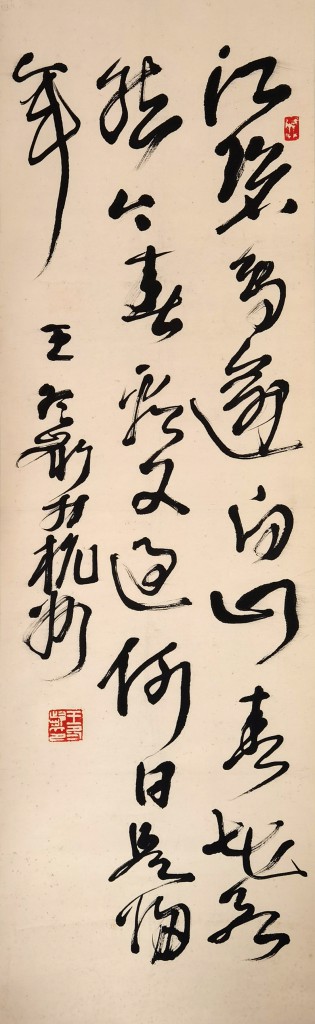 江碧鳥逾白山青花欲
然今春看又過何日是歸
年
王冬齡於杭州
王冬齡印